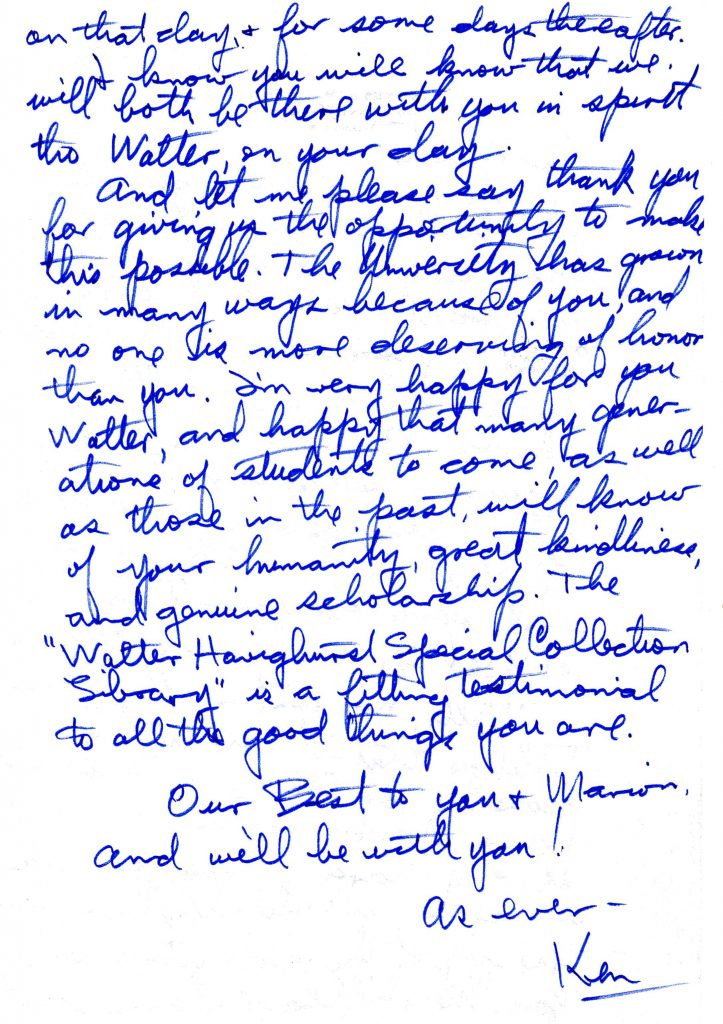 on that day, & for some days thereafter.
I know you will know that we
will both be there with you in spirit
tho Walter, on your day.
And let me please say thank you
for giving us the opportunity to make
this possible. The University has grown
in many ways because of you, and
no one is more deserving of honor
than you. I'm very happy for you
Walter, and happy that many gener-
ations of students to come, as well
as those in the past, will know
of your humanity, great kindliness,
and genuine scholarship. The
"Walter Havighurst Special Collection
Library" is a fitting testimonial
to all the good things you are.
Our Best to you & Marion,
and we'll be with you!
As ever -
Ken